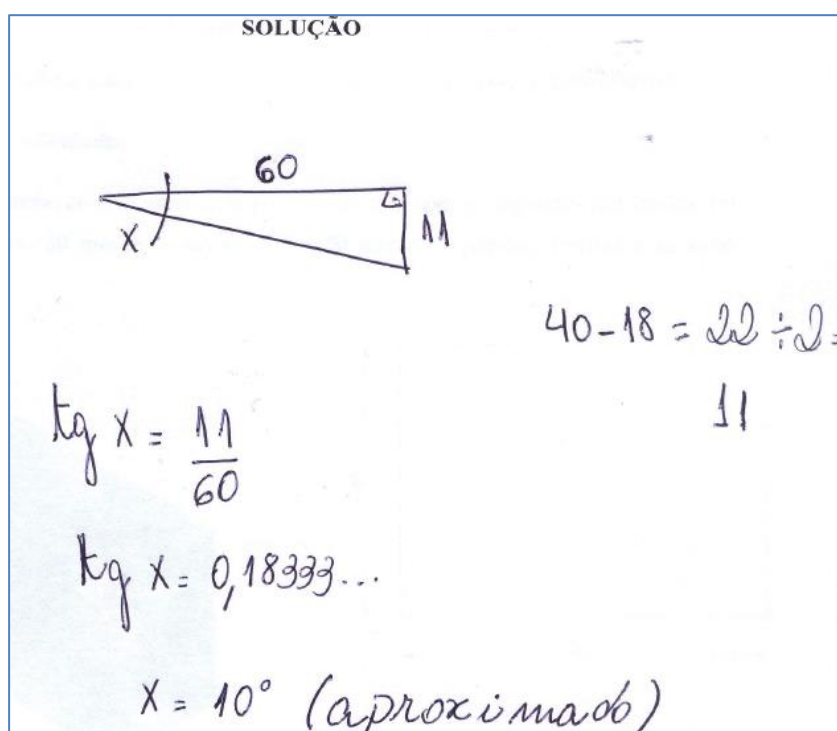 SOLUÇÃO
60
X
11
40-18 = 22 ÷ 2 =
11
tg X = 11/60
tg X = 0,18333...
X = 10° (aproximado)